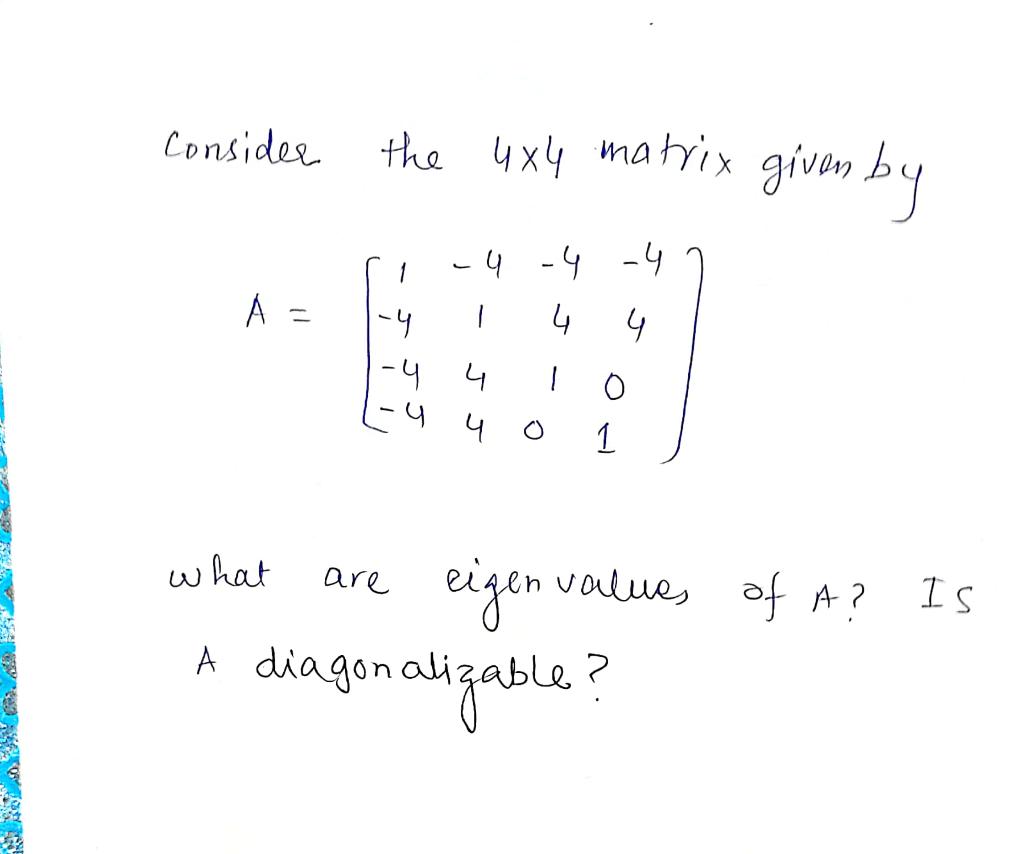 Consider the 4x4 matrix given by
A = [ 1 -4 -4 -4
-4 1 4 4
-4 4 1 0
-4 4 0 1 ]
what are eigen values of A? Is
A diagonalizable?